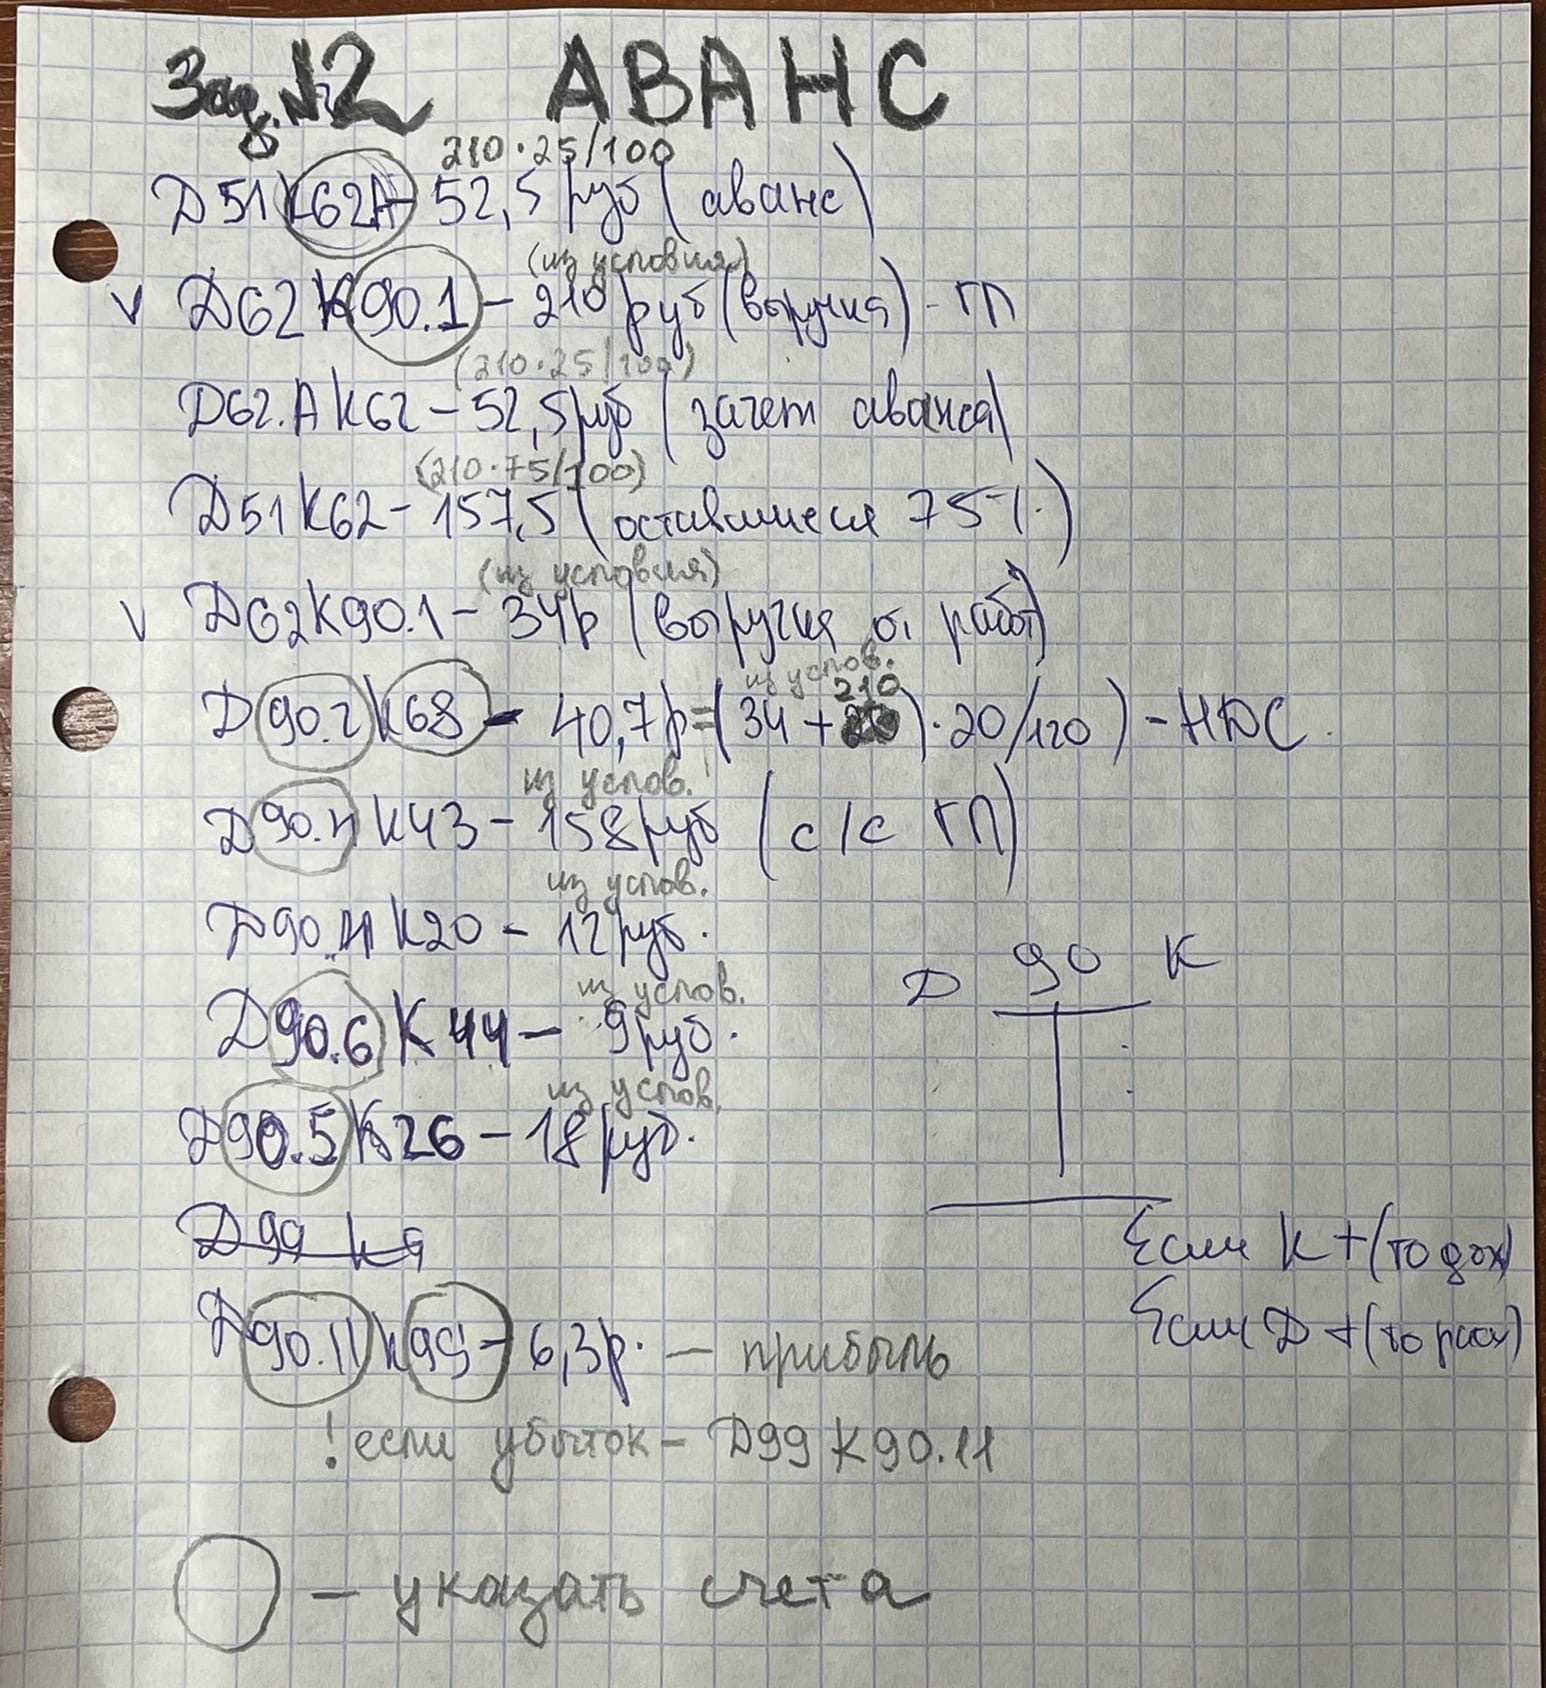 Зад. №2 АВАНС
210·25/100
Д51 К62А – 52,5 руб (аванс)
(из условия)
V Д62 К90.1 – 210 руб (выручка) - ГП
(210·25/100)
Д62.А К62 – 52,5 руб (зачет аванса)
(210·75/100)
Д51 К62 – 157,5 (оставшиеся 75%)
(из условия)
V Д62 К90.1 – 34р (выручка от работ)
из услов.
210
Д90.2 К68 – 40,7р = (34 + ) · 20/120) – НДС.
из услов.
Д90.4 К43 – 158 руб (с/с ГП)
из услов.
Д90.4 К20 – 12 руб.
из услов.
Д90.6 К44 – 9 руб.
из услов.
Д90.5 К26 – 18 руб.
Д 90 К
Д99 К9
Если К + (то дох)
Если Д + (то расх)
Д90.11 К99 – 6,3р. – прибыль
! если убыток – Д99 К90.11
– указать счета